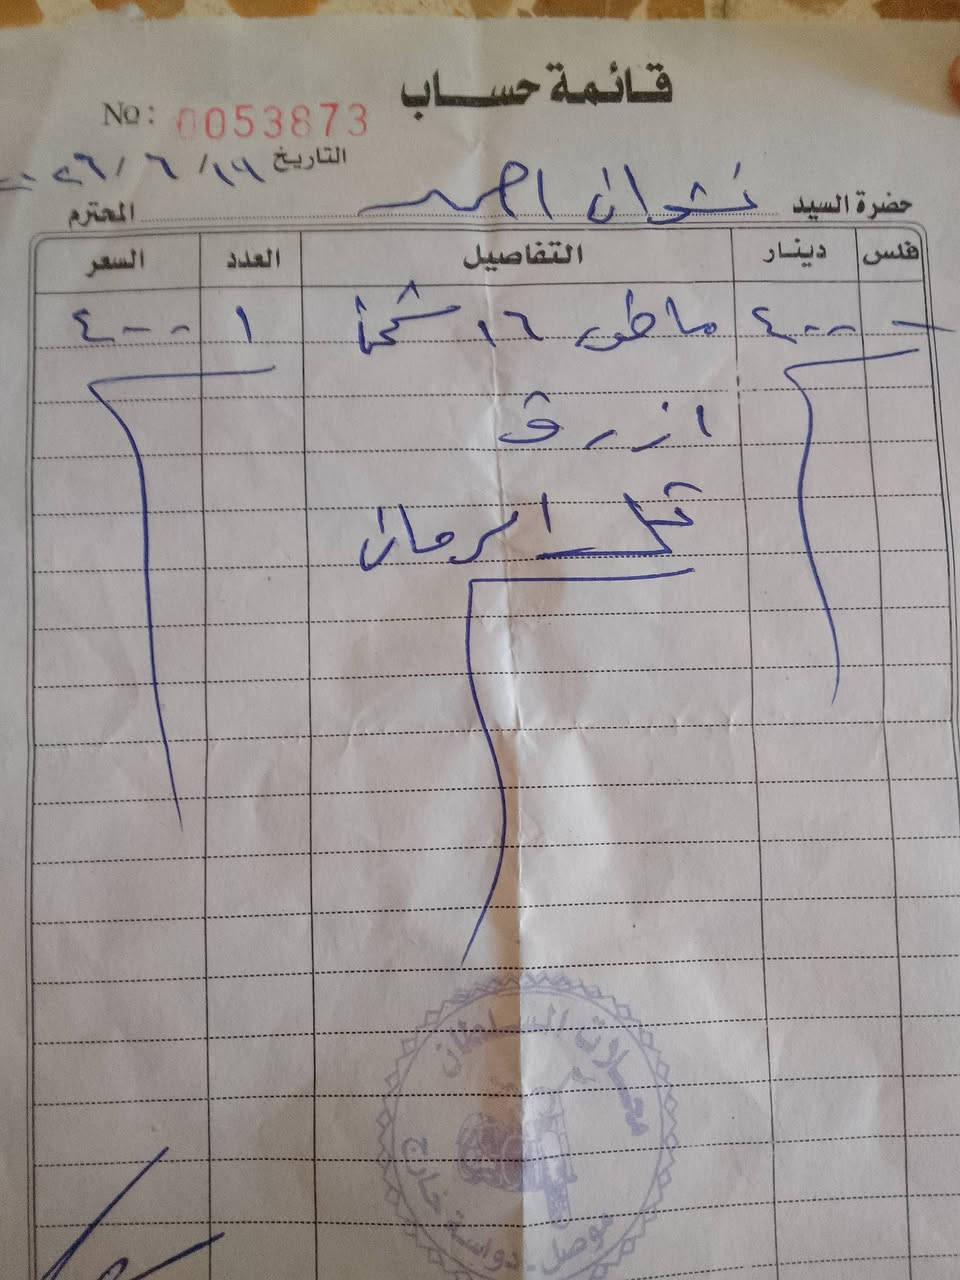 قائمة حساب
No: 0053873
التاريخ ١٩ / ٦ / ٢٠٢٦
حضرة السيد نشوان احمد المحترم
فلس دينار التفاصيل العدد السعر
— ٤٠٠٠ ماطور ١٦ شحن ١ ٤٠٠٠
ازرق
تل الرمان
محلات السلطان
موصل - دواسة خارج